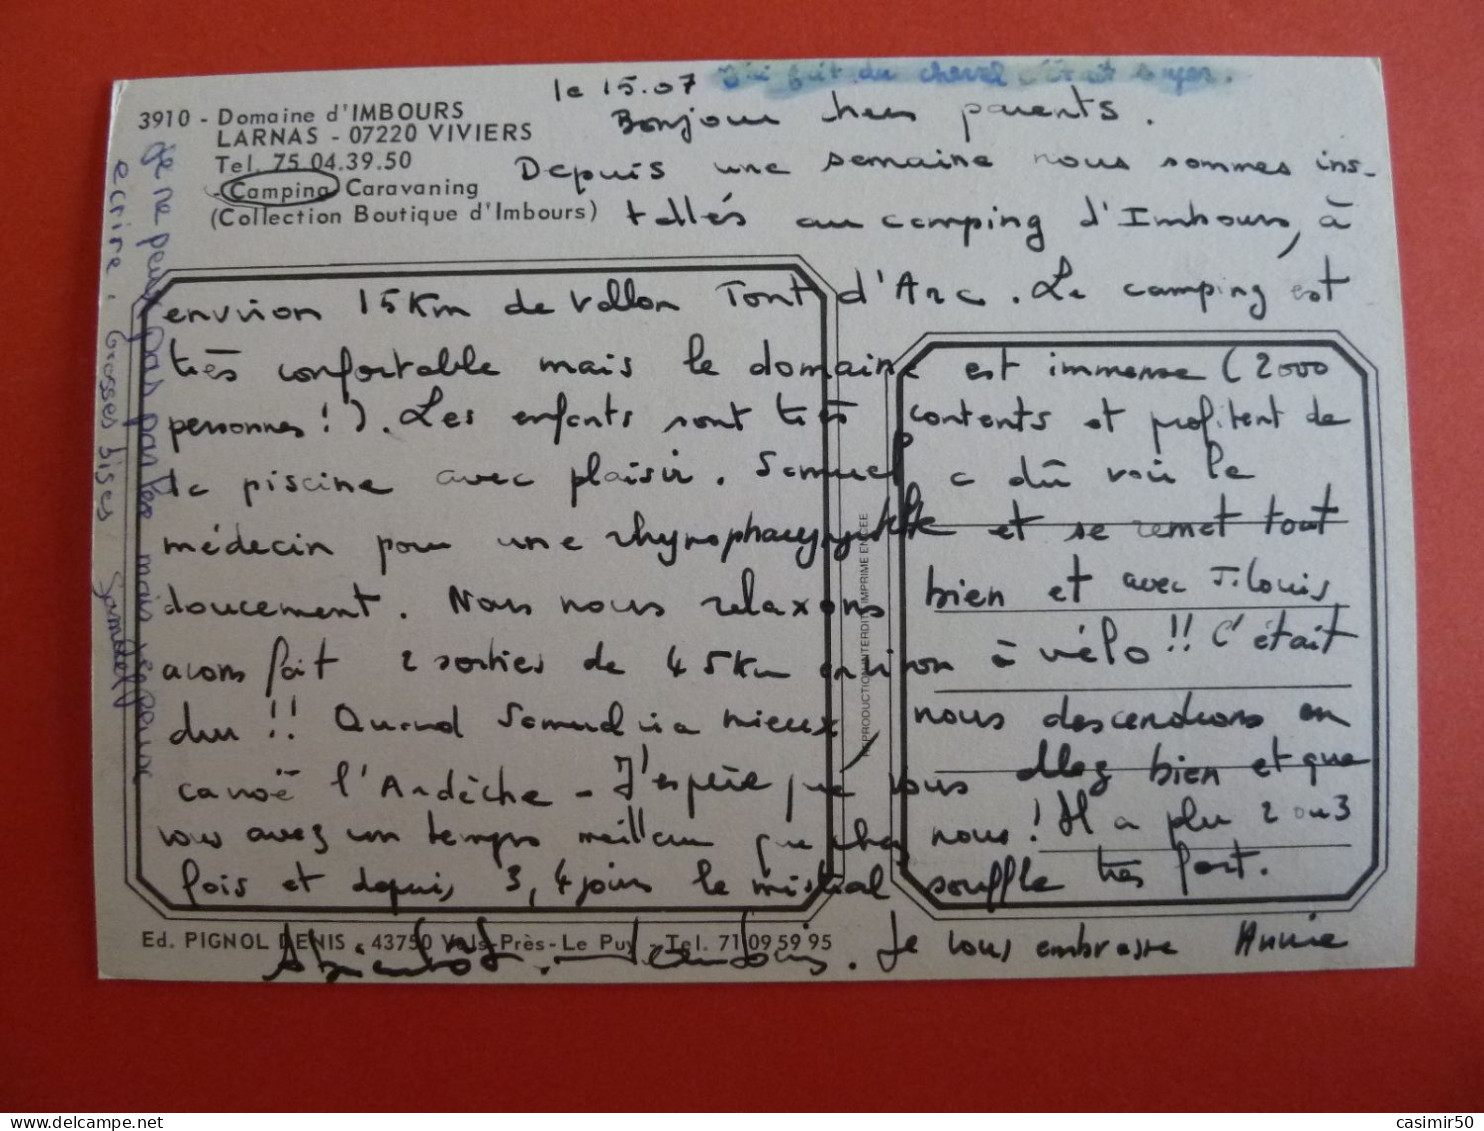 le 15.07 J'ai fait du cheval c'était super.
3910 - Domaine d'IMBOURS
LARNAS - 07220 VIVIERS
Tel. 75.04.39.50
- Camping Caravaning
(Collection Boutique d'Imbours)
Bonjour chers parents.
Depuis une semaine nous sommes ins-
tallés au camping d'Imbours, à
environ 15 Km de Vallon Pont d'Arc. Le camping est
très confortable mais le domaine est immense (2000
personnes!). Les enfants sont très contents et profitent de
la piscine avec plaisir. Samuel a dû voir le
médecin pour une et se remet tout
doucement. Nous nous relaxons bien et avec J.Louis,
avons fait 2 sorties de 45 Km environ à vélo!! C'était
dur!! Quand Samuel ira mieux, nous descendrons en
canoë l'Ardèche - J'espère que vous allez bien et que
vous avez un temps meilleur que chez nous! Il a plu 2 ou 3
fois et depuis 3, 4 jours le mistral souffle très fort.
Je vous embrasse Annie
Je ne peux pas parler mais je peux
écrire. Grosses bises Samuel
REPRODUCTION INTERDITE IMPRIME EN CEE
Ed. PIGNOL DENIS - 43750 Vals-Près-Le Puy - Tel. 71 09 59 95
casimir50